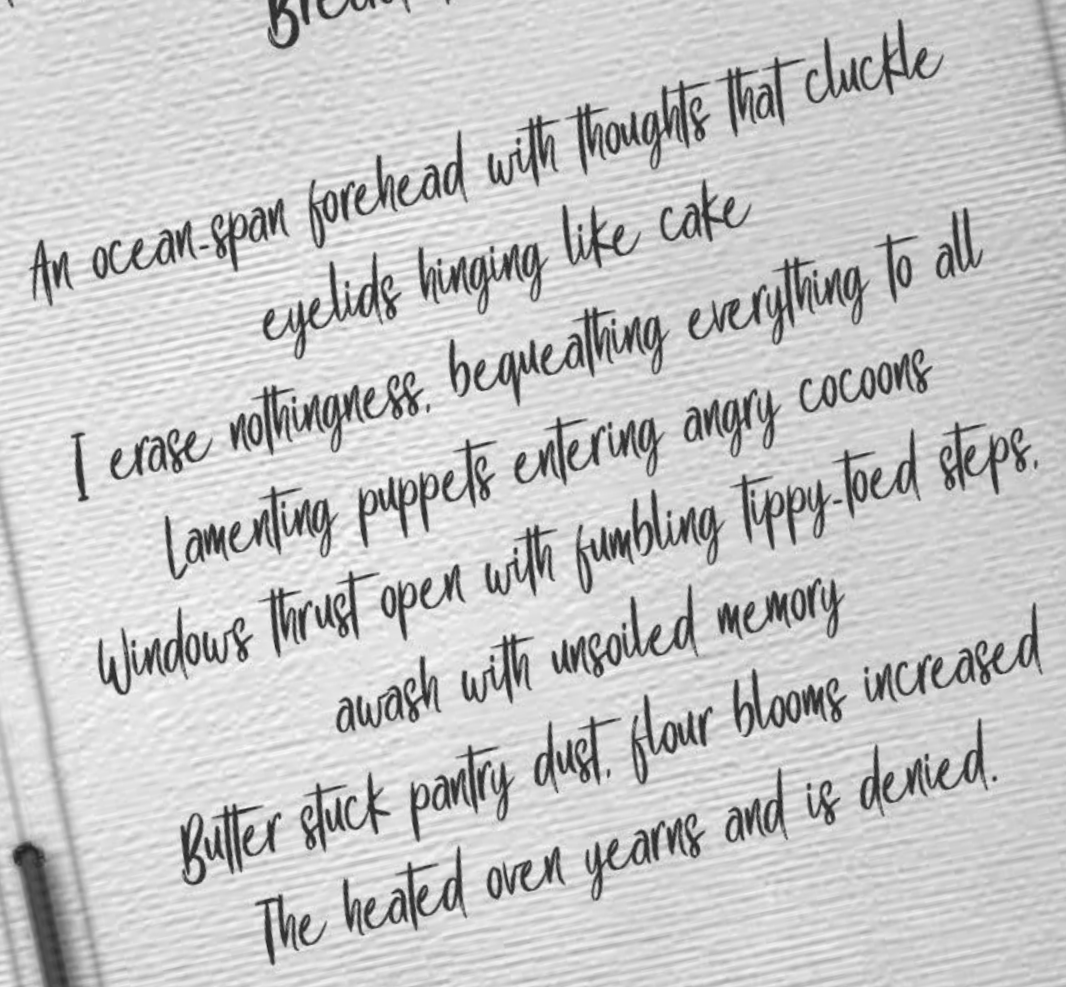 An ocean-span forehead with thoughts that cluckle
eyelids hinging like cake
I erase nothingness, bequeathing everything to all
Lamenting puppets entering angry cocoons
Windows thrust open with fumbling tippy-toed steps,
awash with unsoiled memory
Butter stuck pantry dust, flour blooms increased
The heated oven yearns and is denied.